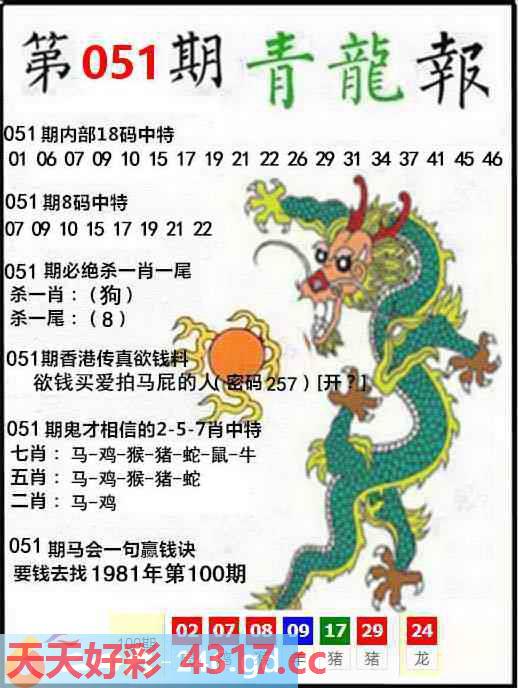 第051期青龍報
051期内部18码中特
01 06 07 09 10 15 17 19 21 22 26 29 31 34 37 41 45 46
051期8码中特
07 09 10 15 17 19 21 22
051期必绝杀一肖一尾
杀一肖：（狗）
杀一尾：（8）
051期香港传真欲钱料
欲钱买爱拍马屁的人(密码257)[开?]
051期鬼才相信的2-5-7肖中特
七肖：马-鸡-猴-猪-蛇-鼠-牛
五肖：马-鸡-猴-猪-蛇
二肖：马-鸡
051期马会一句赢钱诀
要钱去找1981年第100期
100期 02 07 08 09 17 29 24
猪 猪 龙
天天好彩 4317.cc